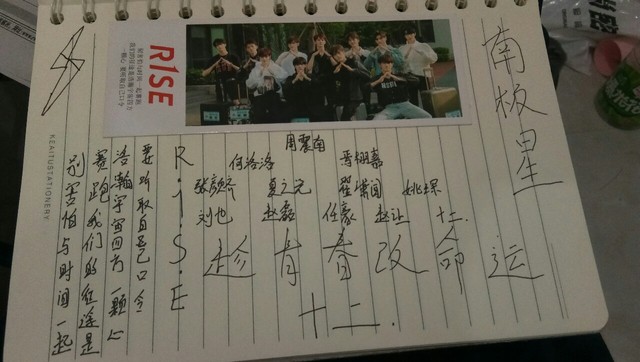 R1SE
南极星
周震南
何洛洛 焉栩嘉
张颜齐 夏之光 翟潇闻 姚琛
刘也 赵磊 任豪 赵让 十二
趁青春改命运
十二.
R.1.S.E
要听取自己口令
浩瀚宇宙四方一颗心
赛跑我们的征途是
别害怕与时间一起
KEAITUSTATIONERY